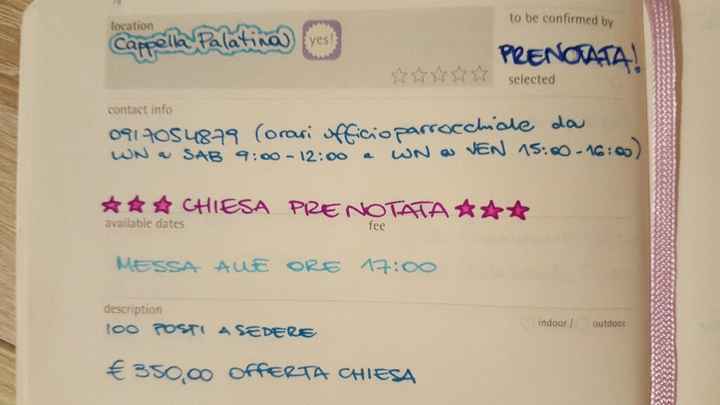 location
to be confirmed by
Cappella Palatina
yes!
PRENOTATA!
selected
contact info
0917054879 (orari ufficio parrocchiale da
LUN a SAB 9:00-12:00 e LUN a VEN 15:00-16:00)
★★★ CHIESA PRENOTATA ★★★
available dates
fee
MESSA ALLE ORE 17:00
description
indoor / outdoor
100 POSTI A SEDERE
€ 350,00 OFFERTA CHIESA